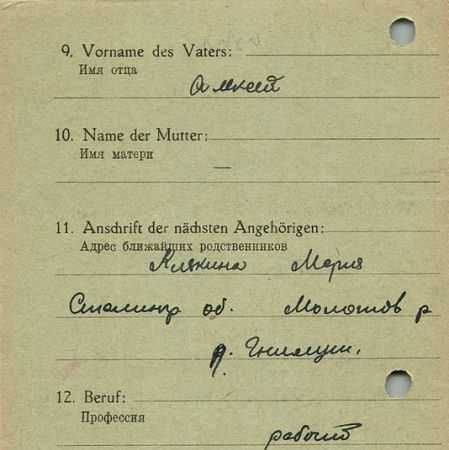 9. Vorname des Vaters:
Имя отца
Алексей
10. Name der Mutter:
Имя матери
—
11. Anschrift der nächsten Angehörigen:
Адрес ближайших родственников
Клякина Мария
Сталингр об. Молотов р
д.
12. Beruf:
Профессия
рабочий